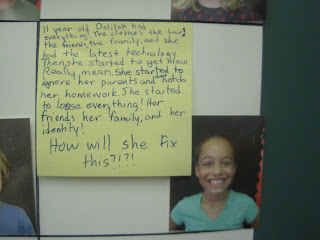 11 year old Delilah had
everything! The clothes the hair,
the friends, the family, and she
had the latest technology
Then she started to get mean
Really, mean. She started to
ignore her parents and not do
her homework. She started
to loose everything! Her
friends her family, and her
identity!
How will she fix
this?!?!